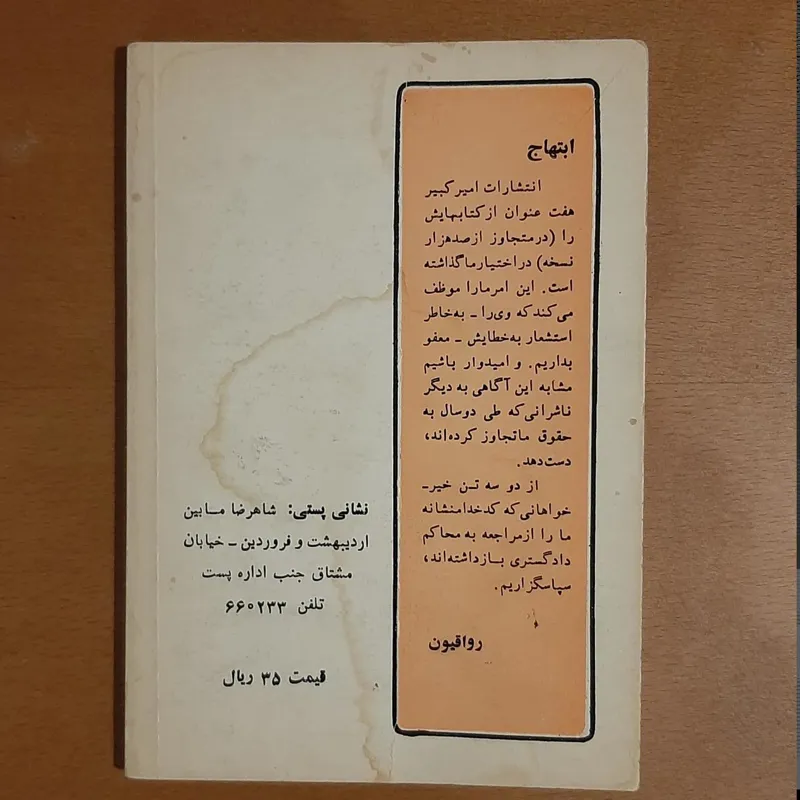 ابتهاج
انتشارات امیرکبیر
هفت عنوان از کتابهایش
را (در متجاوز از صدهزار
نسخه) در اختیار ما گذاشته
است. این امر ما را موظف
می‌کند که وی را ـ به خاطر
استشعار به خطایش ـ معفو
بداریم. و امیدوار باشیم
مشابه این آگاهی به دیگر
ناشرانی که طی دو سال به
حقوق ما تجاوز کرده‌اند،
دست دهد.
از دو سه تن خیر-
خواهانی که کدخدامنشانه
ما را از مراجعه به محاکم
دادگستری بازداشته‌اند،
سپاسگزاریم.
رواقیون
نشانی پستی: شاهرضا مابین
اردیبهشت و فروردین - خیابان
مشتاق جنب اداره پست
تلفن ۶۶۰۲۳۳
قیمت ۳۵ ریال